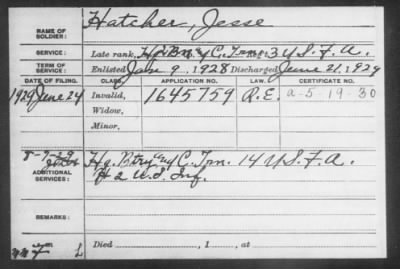 NAME OF SOLDIER: Hatcher, Jesse
SERVICE: Late rank, Hq Btry & C. Trn 3 U.S.F.A.
TERM OF SERVICE: Enlisted Jan 9, 1928 Discharged June 21, 1929
DATE OF FILING. CLASS. APPLICATION NO. LAW. CERTIFICATE NO.
1929 June 24 Invalid, 1645759 R.E. a-5 19-30
Widow,
Minor,
Hq. Btry & C. Trn. 14 U.S.F.A.
ADDITIONAL SERVICES: H 2 U.S. Inf.
REMARKS:
Died , 1 , at